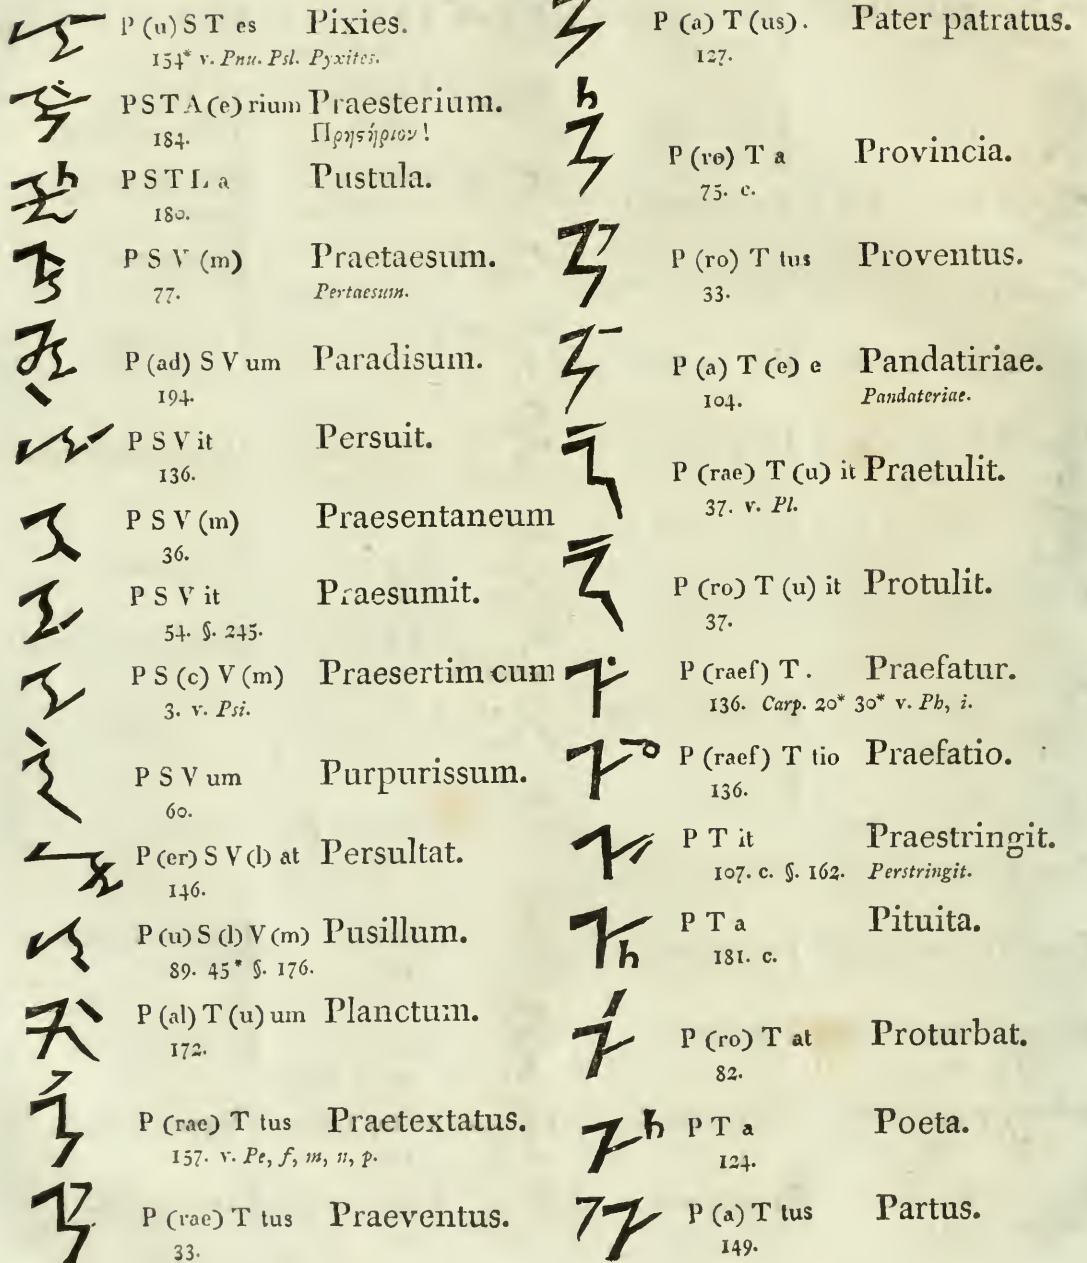 P (u) S T es Pixies.
154* v. Pnu. Psl. Pyxites.
PSTA(e) rium Praesterium.
184. Πρηςήριον!
PSTL a Pustula.
180.
P S V (m) Praetaesum.
77. Pertaesum.
P (ad) S V um Paradisum.
194.
P S V it Persuit.
136.
P S V (m) Praesentaneum
36.
P S V it Praesumit.
54. §. 245.
P S (c) V (m) Praesertim cum
3. v. Psi.
P S V um Purpurissum.
60.
P (er) S V (l) at Persultat.
146.
P (u) S (l) V (m) Pusillum.
89. 45* §. 176.
P (al) T (u) um Planctum.
172.
P (rae) T tus Praetextatus.
157. v. Pe, f, m, n, p.
P (rae) T tus Praeventus.
33.
P (a) T (us). Pater patratus.
127.
P (ro) T a Provincia.
75. c.
P (ro) T tus Proventus.
33.
P (a) T (e) e Pandatiriae.
104. Pandateriae.
P (rae) T (u) it Praetulit.
37. v. Pl.
P (ro) T (u) it Protulit.
37.
P (raef) T. Praefatur.
136. Carp. 20* 30* v. Ph, i.
P (raef) T tio Praefatio.
136.
P T it Praestringit.
107. c. §. 162. Perstringit.
P T a Pituita.
181. c.
P (ro) T at Proturbat.
82.
P T a Poeta.
124.
P (a) T tus Partus.
149.